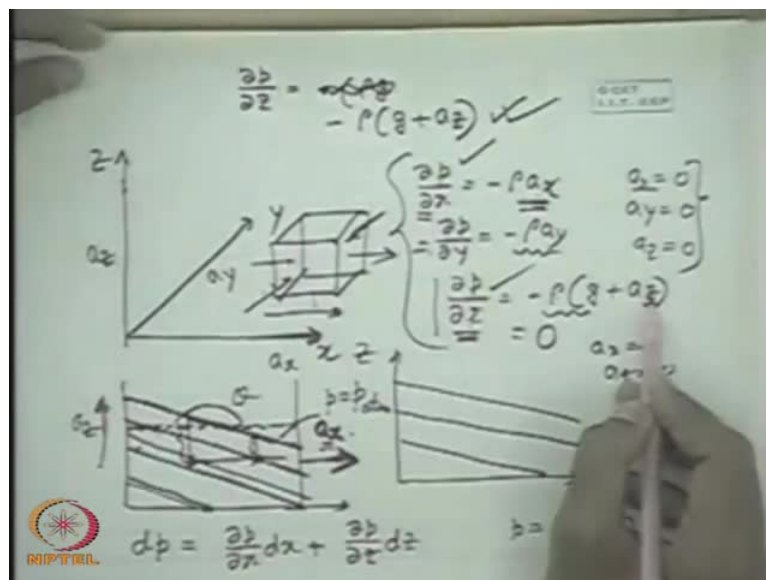 ∂p/∂z =
- ρ(g + az) ✓✓
I.I.T. KGP
z
az
ay
y
x
ax
∂p/∂x = - ρax
= ∂p/∂y = - ρay
∂p/∂z = - ρ(g + az)
= 0
az = 0
ay = 0
az = 0
az
θ
p = patm
ax
z
dp = ∂p/∂x dx + ∂p/∂z dz
p =
NPTEL